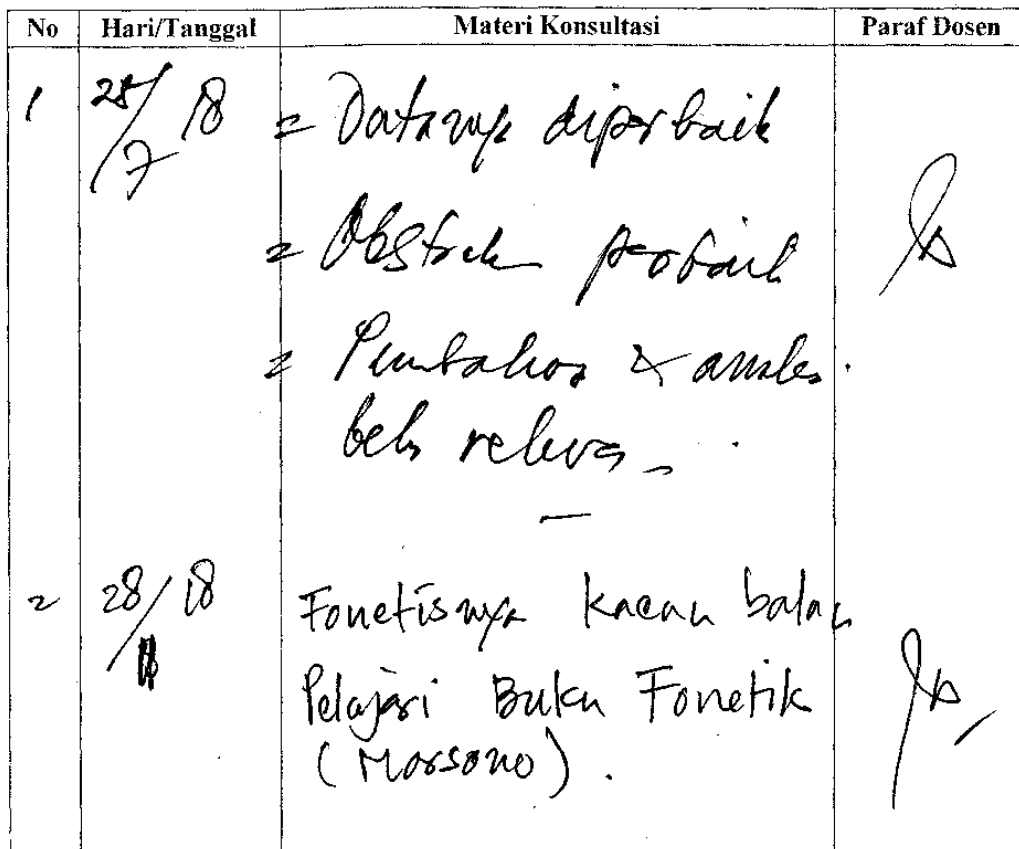 No Hari/Tanggal Materi Konsultasi Paraf Dosen
1 25/7 18 = Datanya diperbaik
= Abstrak perbaik
= Pembahas & analis
belu relevan
2 28/11 18 Fonetisnya kacau balau
Pelajari Buku Fonetik
(Marsono).